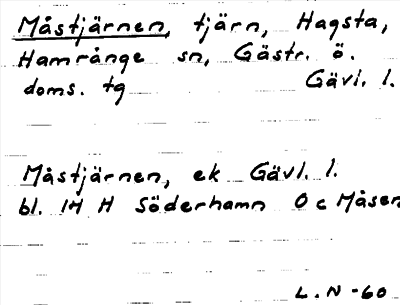 Måstjärnen, tjärn, Hagsta,
Hamrånge sn, Gästr. ö.
doms. tg Gävl. l.
Måstjärnen, ek Gävl. l.
bl. 14 H Söderhamn O c Måsen
L. N -60